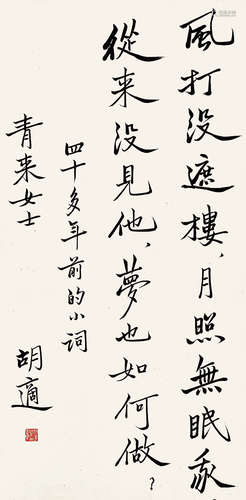 風打没遮樓，月照無眠我，
從来没見他，夢也如何做？
四十多年前的小词
青来女士
胡適